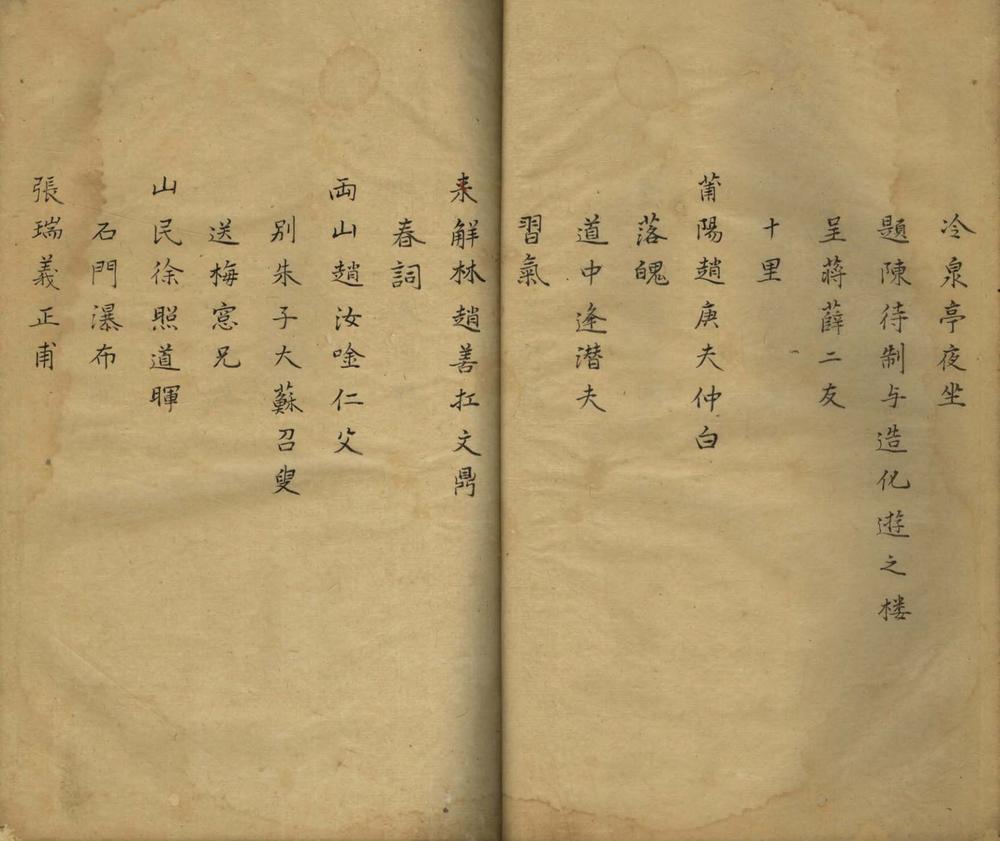 冷泉亭夜坐
題陳待制与造化遊之楼
呈蔣薛二友
十里
莆陽趙庚夫仲白
落魄
道中逢潜夫
習氣
来解林趙善扛文鼎
春詞
両山趙汝唫仁父
別朱子大蘇召叟
送梅窓兄
山民徐照道暉
石門瀑布
張瑞義正甫